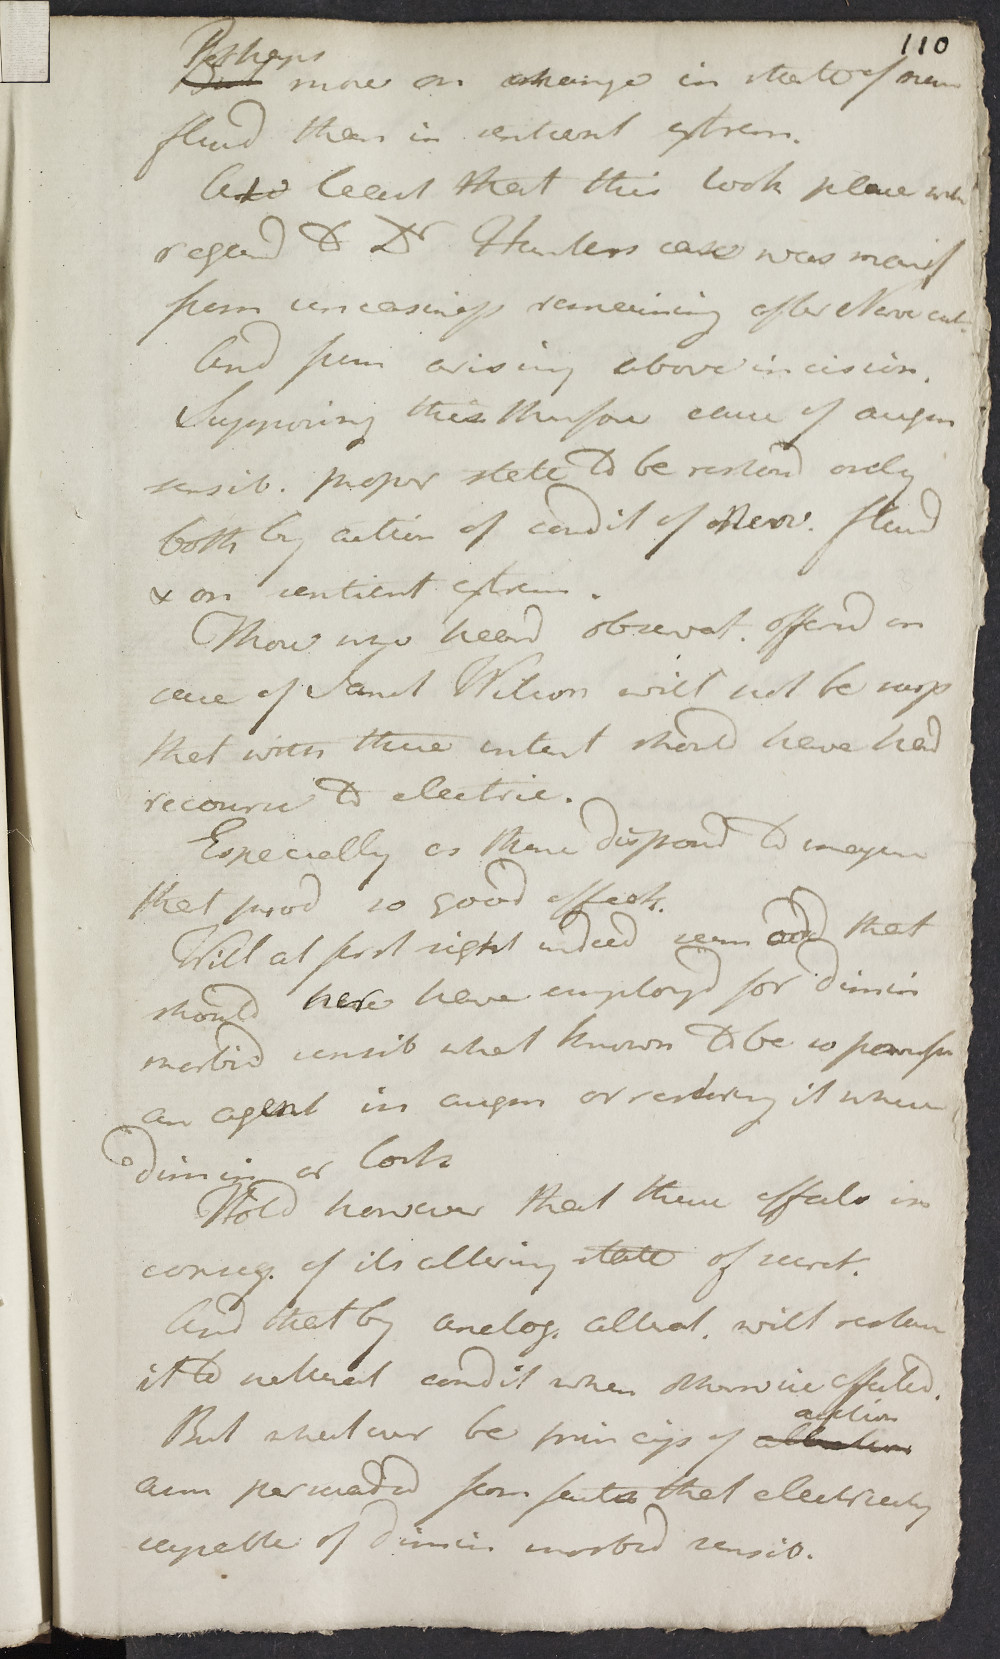 110
Perhaps
But more on change in state of nerv
fluid than in sentient extrem.
At least that this took place with
regard to Dr Hunters case was manif
from uneasiness remaining after Nerve cut.
And from arising above incision.
Supposing this therefore cause of augm
sensib. proper state to be restord only
both by action of condit of Nerv. fluid
& on sentient extrem.
Those who heard observat. offerd on
case of Janet Wilson will not be surp
that with these intent should have had
recourse to electric.
Especially as there disposd to imagin
that prod so good effects.
Will at first sight indeed seem odd that
should here have employd for dimin
morbid sensib what known to be so powerfu
an agent in augm or restoring it when
dimin or lost
Hold however that these effects in
conseq. of its altering state of secret.
And that by analog. alterat. will restore
it to natural condit when otherwise affected.
action
But whatever be princip of alteration
am perswaded from facts that electricity
capable of dimin morbid sensib.